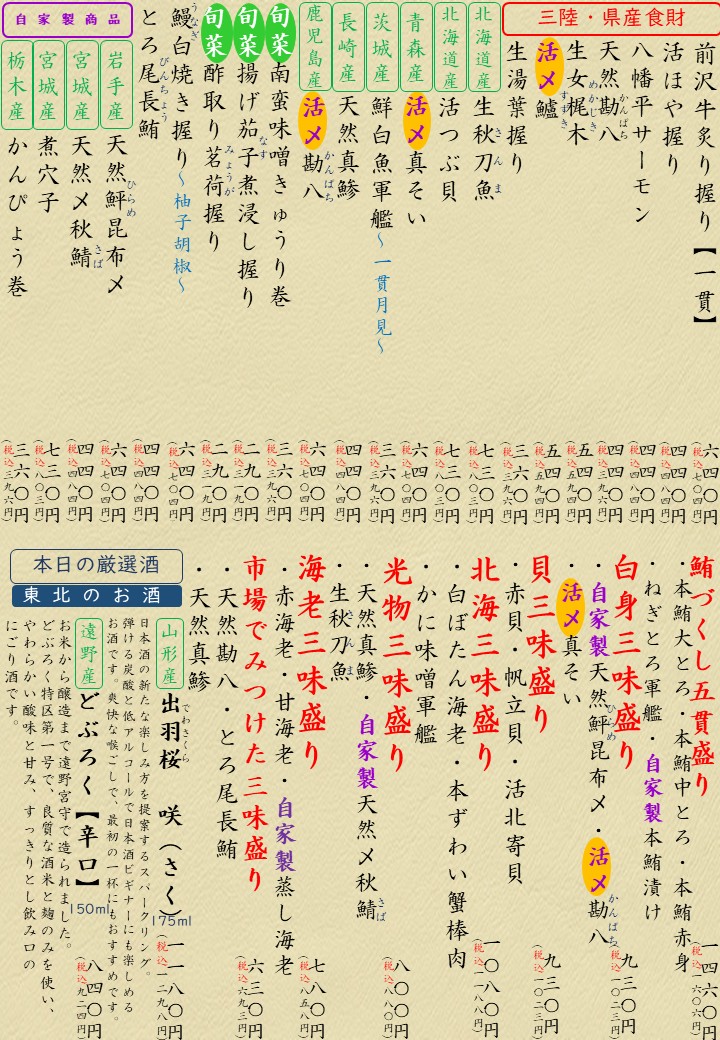 三陸・県産食財
前沢牛炙り握り【一貫】
六四〇円
(税込七〇四円)
活ほや握り
四四〇円
(税込四八四円)
八幡平サーモン
四四〇円
(税込四八四円)
天然勘八
かんぱち
三六〇円
(税込三九六円)
生女梶木
めかじき
五四〇円
(税込五九四円)
活〆鱸
すずき
五四〇円
(税込五九四円)
生湯葉握り
三六〇円
(税込三九六円)
北海道産
生秋刀魚
さんま
七三〇円
(税込八〇三円)
北海道産
活つぶ貝
七三〇円
(税込八〇三円)
青森産
活〆真そい
六四〇円
(税込七〇四円)
茨城産
鮮白魚軍艦～一貫月見～
三六〇円
(税込三九六円)
長崎産
天然真鯵
四四〇円
(税込四八四円)
鹿児島産
活〆勘八
かんぱち
六四〇円
(税込七〇四円)
旬菜
南蛮味噌きゅうり巻
三六〇円
(税込三九六円)
旬菜
揚げ茄子煮浸し握り
なす
二九〇円
(税込三一九円)
旬菜
酢取り茗荷握り
みょうが
二九〇円
(税込三一九円)
鰻白焼き握り～柚子胡椒～
うなぎ
六四〇円
(税込七〇四円)
とろ尾長鮪
びんちょう
四四〇円
(税込四八四円)
自家製商品
岩手産
天然鮃昆布〆
ひらめ
六四〇円
(税込七〇四円)
宮城産
天然〆秋鯖
さば
四四〇円
(税込四八四円)
宮城産
煮穴子
七三〇円
(税込八〇三円)
栃木産
かんぴょう巻
三六〇円
(税込三九六円)
鮪づくし五貫盛り
・本鮪大とろ・本鮪中とろ・本鮪赤身
・ねぎとろ軍艦・自家製本鮪漬け
一四六〇円
(税込一六〇六円)
白身三味盛り
・自家製天然鮃昆布〆・活〆勘八
ひらめ
かんぱち
・活〆真そい
九三〇円
(税込一〇二三円)
貝三味盛り
・赤貝・帆立貝・活北寄貝
九三〇円
(税込一〇二三円)
北海三味盛り
・白ぼたん海老・本ずわい蟹棒肉
・かに味噌軍艦
一〇八〇円
(税込一一八八円)
光物三味盛り
・天然真鯵・自家製天然〆秋鯖
さば
・生秋刀魚
さんま
八〇〇円
(税込八八〇円)
海老三味盛り
・赤海老・甘海老・自家製蒸し海老
七八〇円
(税込八五八円)
市場でみつけた三味盛り
・天然勘八・とろ尾長鮪
・天然真鯵
六三〇円
(税込六九三円)
本日の厳選酒
東北のお酒
山形産
出羽桜　咲（さく）
でわさくら
175ml
一一八〇円
(税込一二九八円)
日本酒の新たな楽しみ方を提案するスパークリング。
弾ける炭酸と低アルコールで日本酒ビギナーにも楽しめる
お酒です。爽快な喉ごしで、最初の一杯にもおすすめです。
遠野産
どぶろく【辛口】
150ml
八四〇円
(税込九二四円)
お米から醸造まで遠野宮守で造られました。
どぶろく特区第一号で、良質な酒米と麹のみを使い、
やわらかい酸味と甘み、すっきりとし飲み口の
にごり酒です。